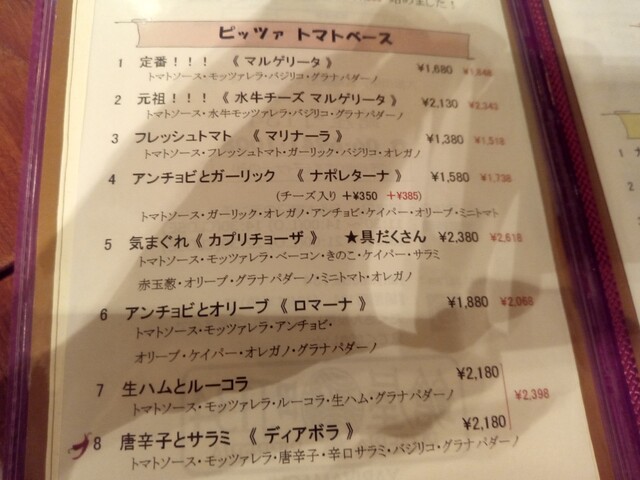 始めました！
ピッツァ トマトベース
1 定番！！！ 《 マルゲリータ 》 ¥1,680 ¥1,848
トマトソース・モッツァレラ・バジリコ・グラナパダーノ
2 元祖！！！ 《 水牛チーズ マルゲリータ 》 ¥2,130 ¥2,343
トマトソース・水牛モッツァレラ・バジリコ・グラナパダーノ
3 フレッシュトマト 《 マリナーラ 》 ¥1,380 ¥1,518
トマトソース・フレッシュトマト・ガーリック・バジリコ・オレガノ
4 アンチョビとガーリック 《 ナポレターナ 》 ¥1,580 ¥1,738
(チーズ入り +¥350 +¥385)
トマトソース・ガーリック・オレガノ・アンチョビ・ケイパー・オリーブ・ミニトマト
5 気まぐれ《 カプリチョーザ 》 ★具だくさん ¥2,380 ¥2,618
トマトソース・モッツァレラ・ベーコン・きのこ・ケイパー・サラミ
赤玉葱・オリーブ・グラナパダーノ・ミニトマト・オレガノ
6 アンチョビとオリーブ 《 ロマーナ 》 ¥1,880 ¥2,068
トマトソース・モッツァレラ・アンチョビ・
オリーブ・ケイパー・オレガノ・グラナパダーノ
7 生ハムとルーコラ ¥2,180
トマトソース・モッツァレラ・ルーコラ・生ハム・グラナパダーノ
¥2,398
8 唐辛子とサラミ 《 ディアボラ 》 ¥2,180
トマトソース・モッツァレラ・唐辛子・辛口サラミ・バジリコ・グラナパダーノ